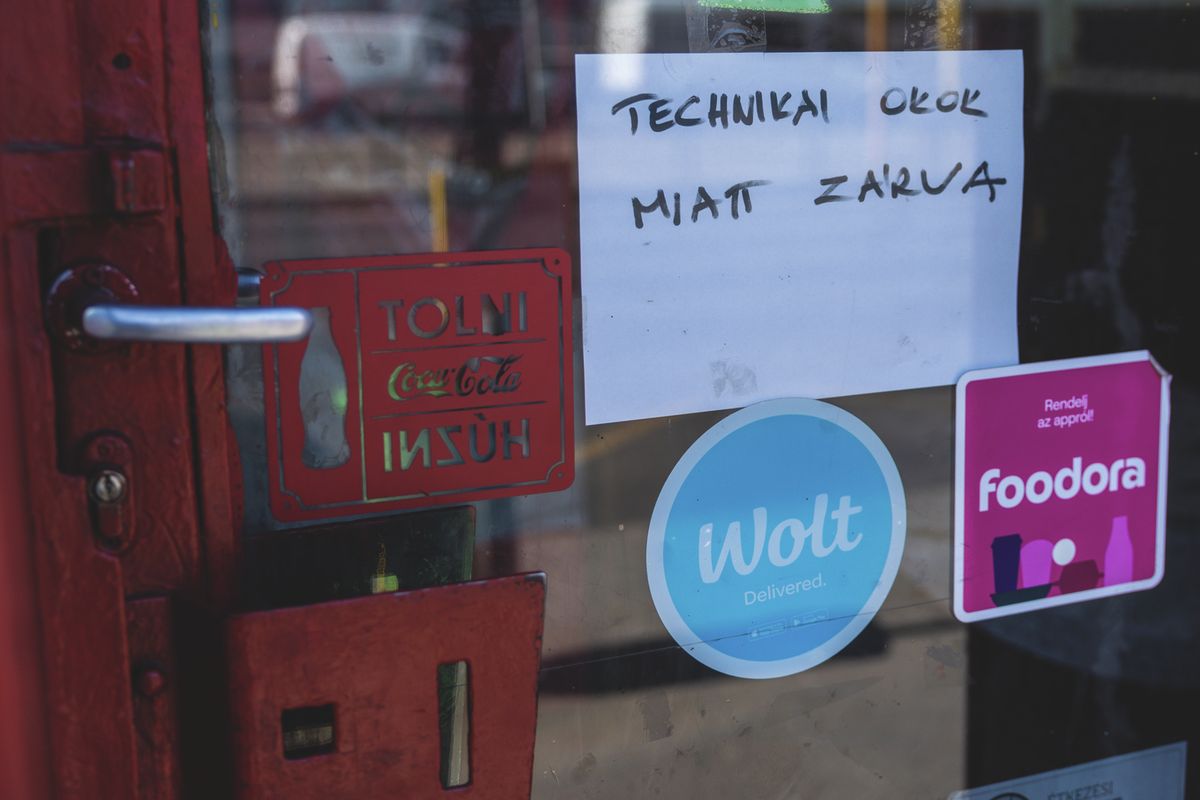 TECHNIKAI OKOK
MIATT ZÁRVA
TOLNI
Coca-Cola
HÚZNI
Rendelj
az appról!
foodora
Wolt
Delivered.
ÉTKEZÉSI